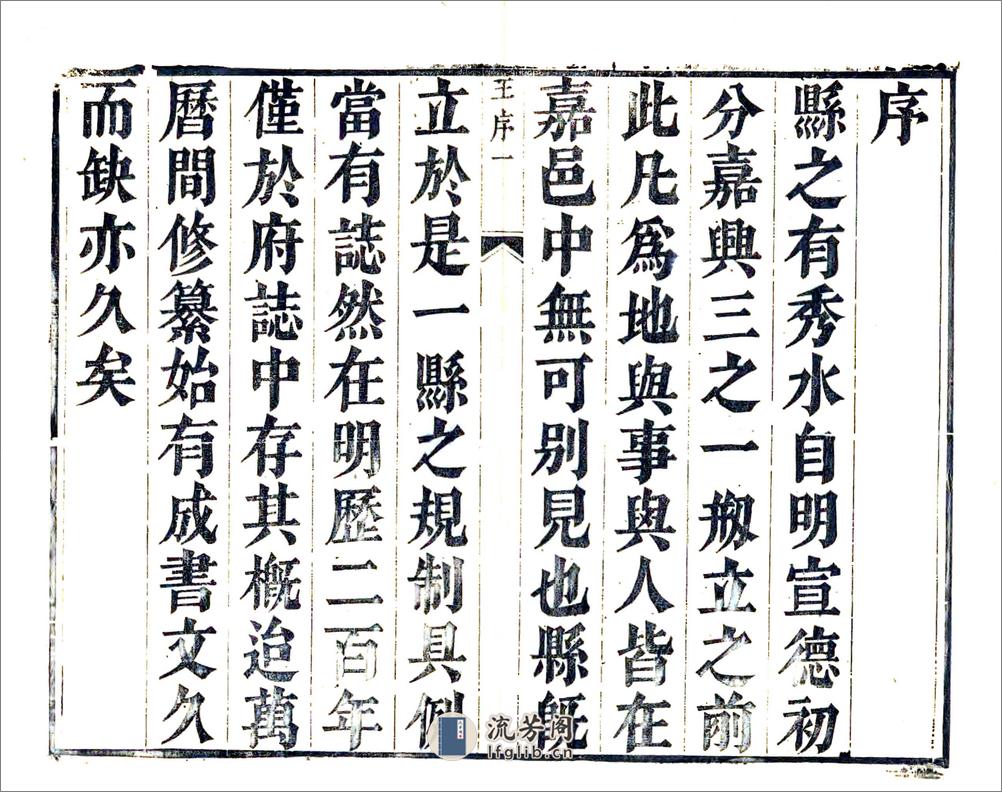 序
縣之有秀水自明宣德初
分嘉興三之一剏立之前
此凡爲地與事與人皆在
嘉邑中無可别見也縣既
王序一
立於是一縣之規制具例
當有誌然在明歷二百年
僅於府誌中存其概迨萬
曆間修纂始有戚書文久
而缺亦久矣
流芳阁
lfglib.cn